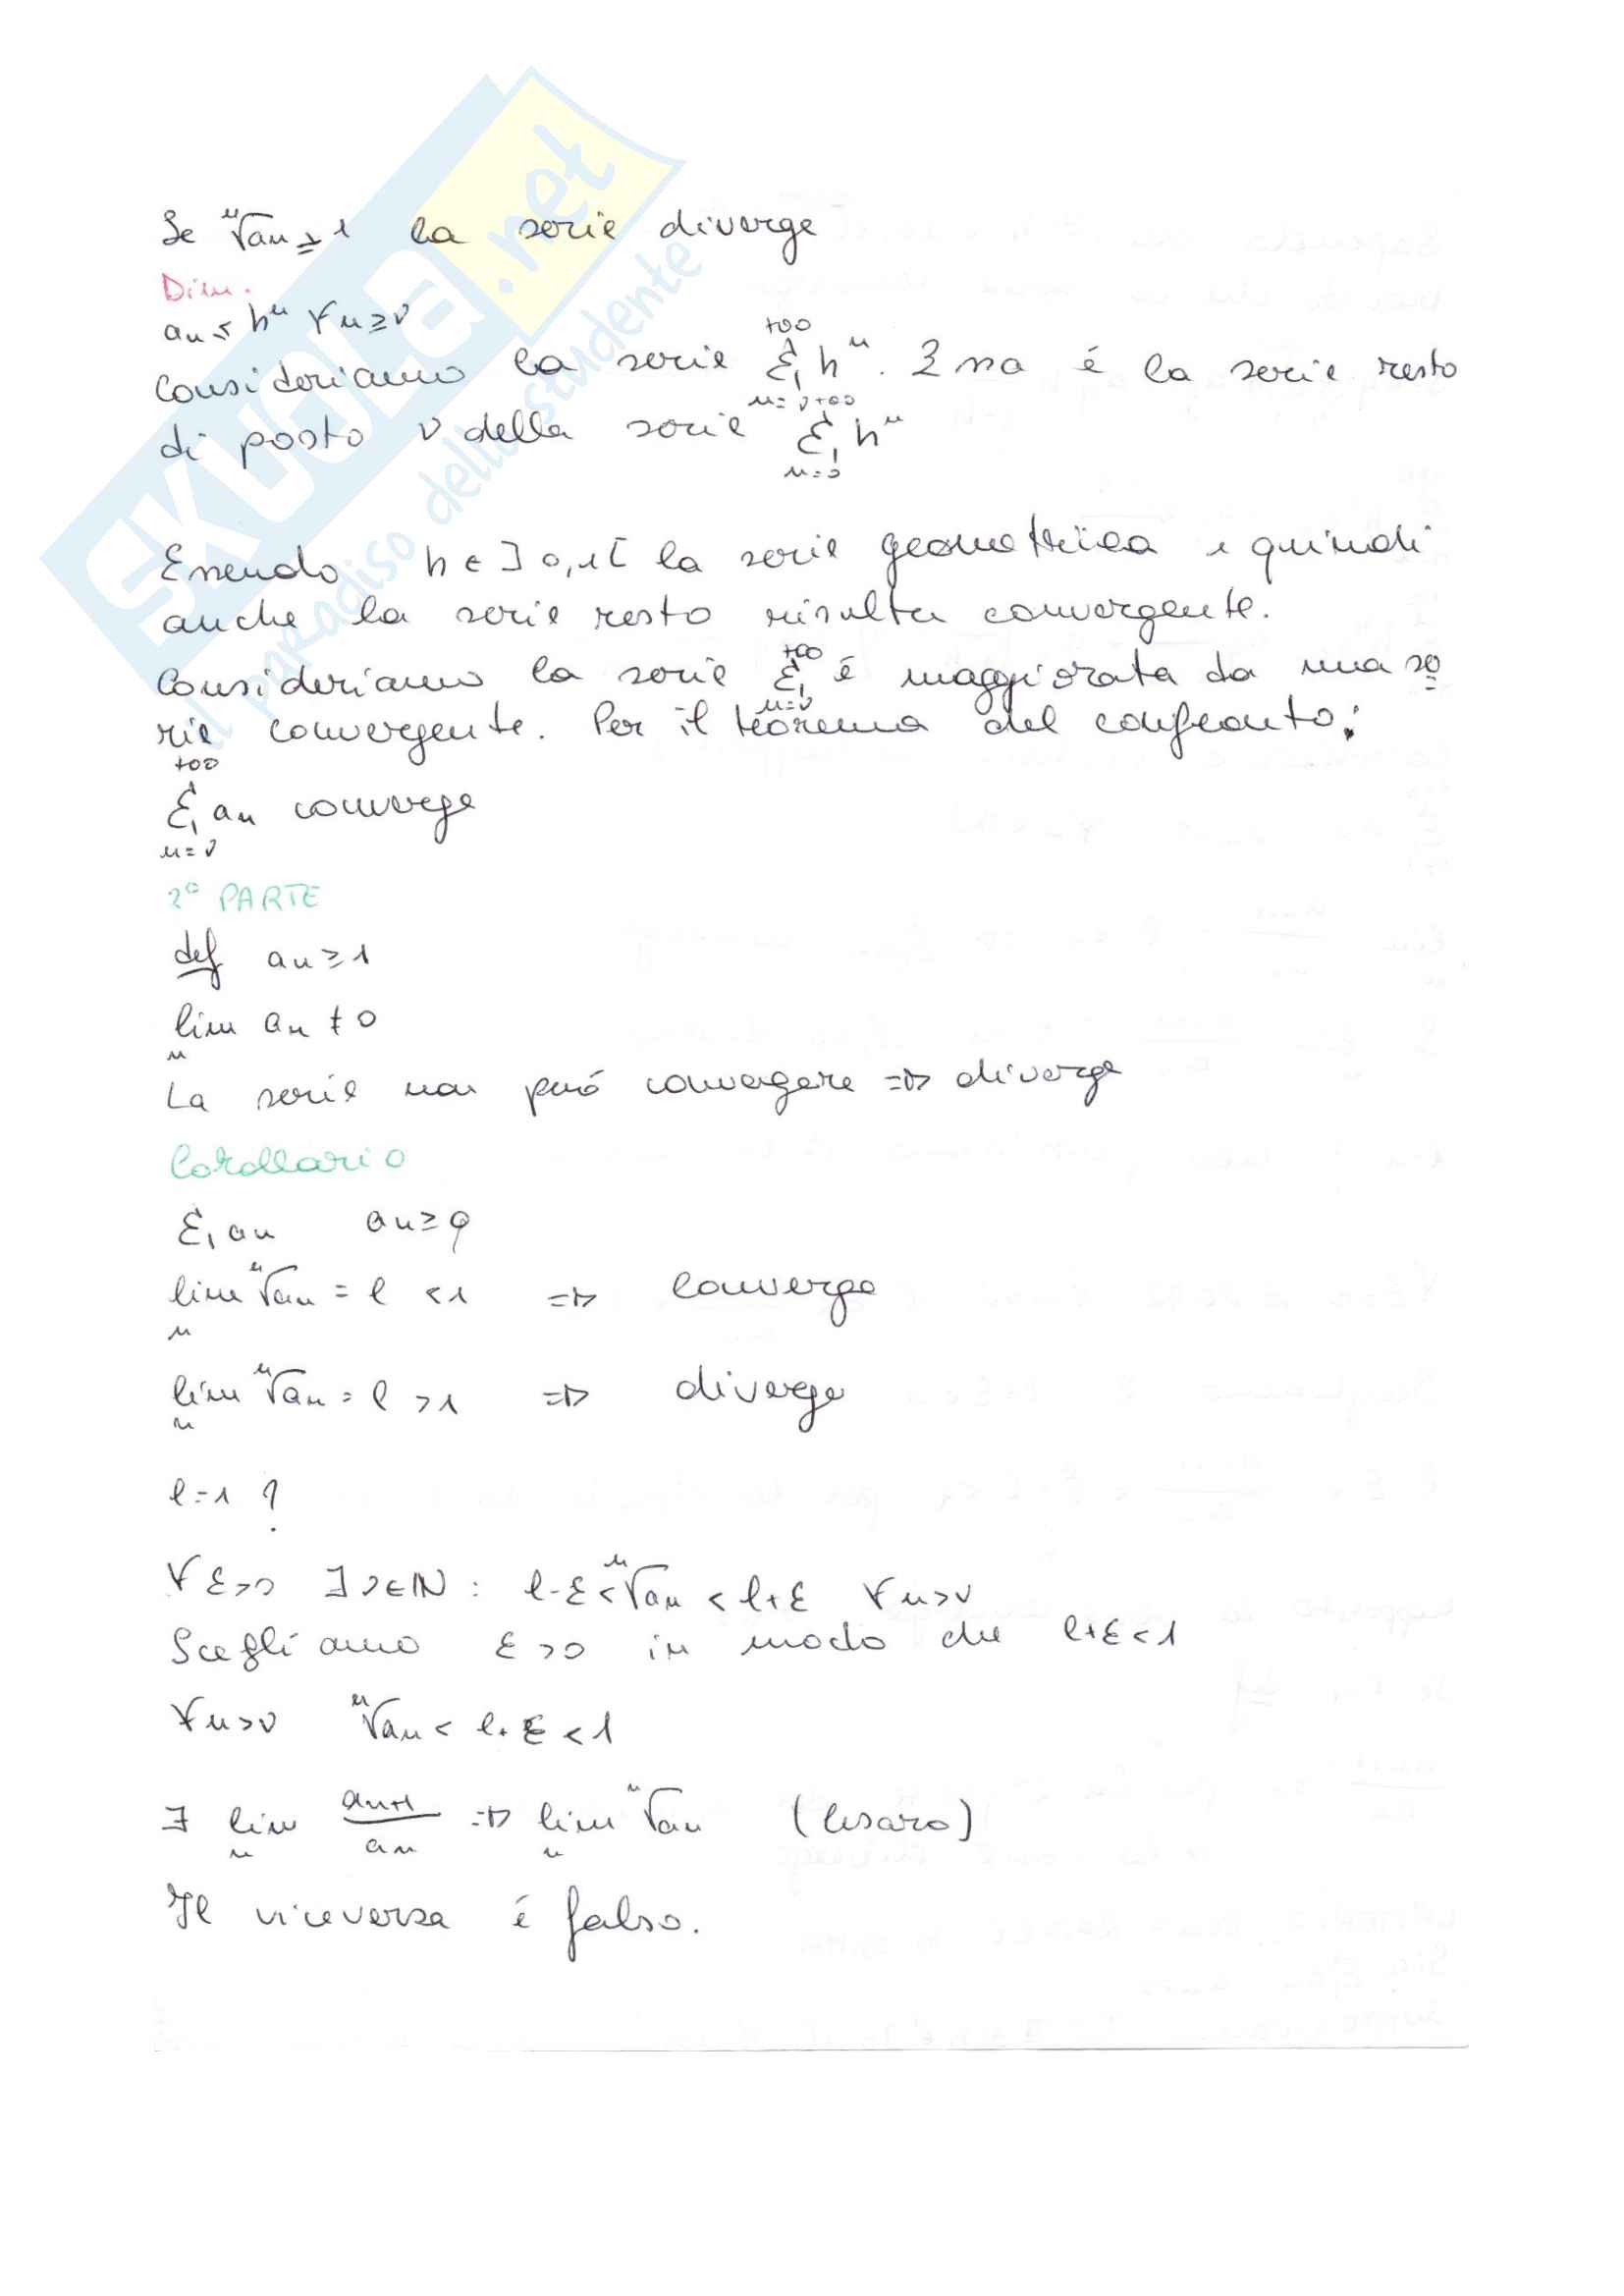 SKUOLA.net
il paradiso dello studente
Se ⁿ√an ≥ 1 la serie diverge
Dim.
an ≤ hⁿ ∀n ≥ ν
Consideriamo la serie Σ_{n=ν}^{+∞} hⁿ. Essa é la serie resto
di posto ν della serie Σ_{n=0}^{+∞} hⁿ
Essendo h ∈ ]0,1[ la serie geometrica e quindi
anche la serie resto risulta convergente.
Consideriamo la serie Σ_{n=ν}^{+∞} é maggiorata da una se
rie convergente. Per il teorema del confronto:
Σ_{n=ν}^{+∞} an converge
2ª PARTE
def an ≥ 1
lim_n an ≠ 0
La serie non puó convergere => diverge
Corollario
Σ an an ≥ 0
lim_n ⁿ√an = l < 1 => converge
lim_n ⁿ√an = l > 1 => diverge
l = 1 ?
∀ε>0 ∃ν∈N : l-ε < ⁿ√an < l+ε ∀n>ν
Scegliamo ε>0 in modo che l+ε<1
∀n>ν ⁿ√an < l+ε < 1
∃ lim_n an+1/an => lim_n ⁿ√an (Cesaro)
Il viceversa é falso.